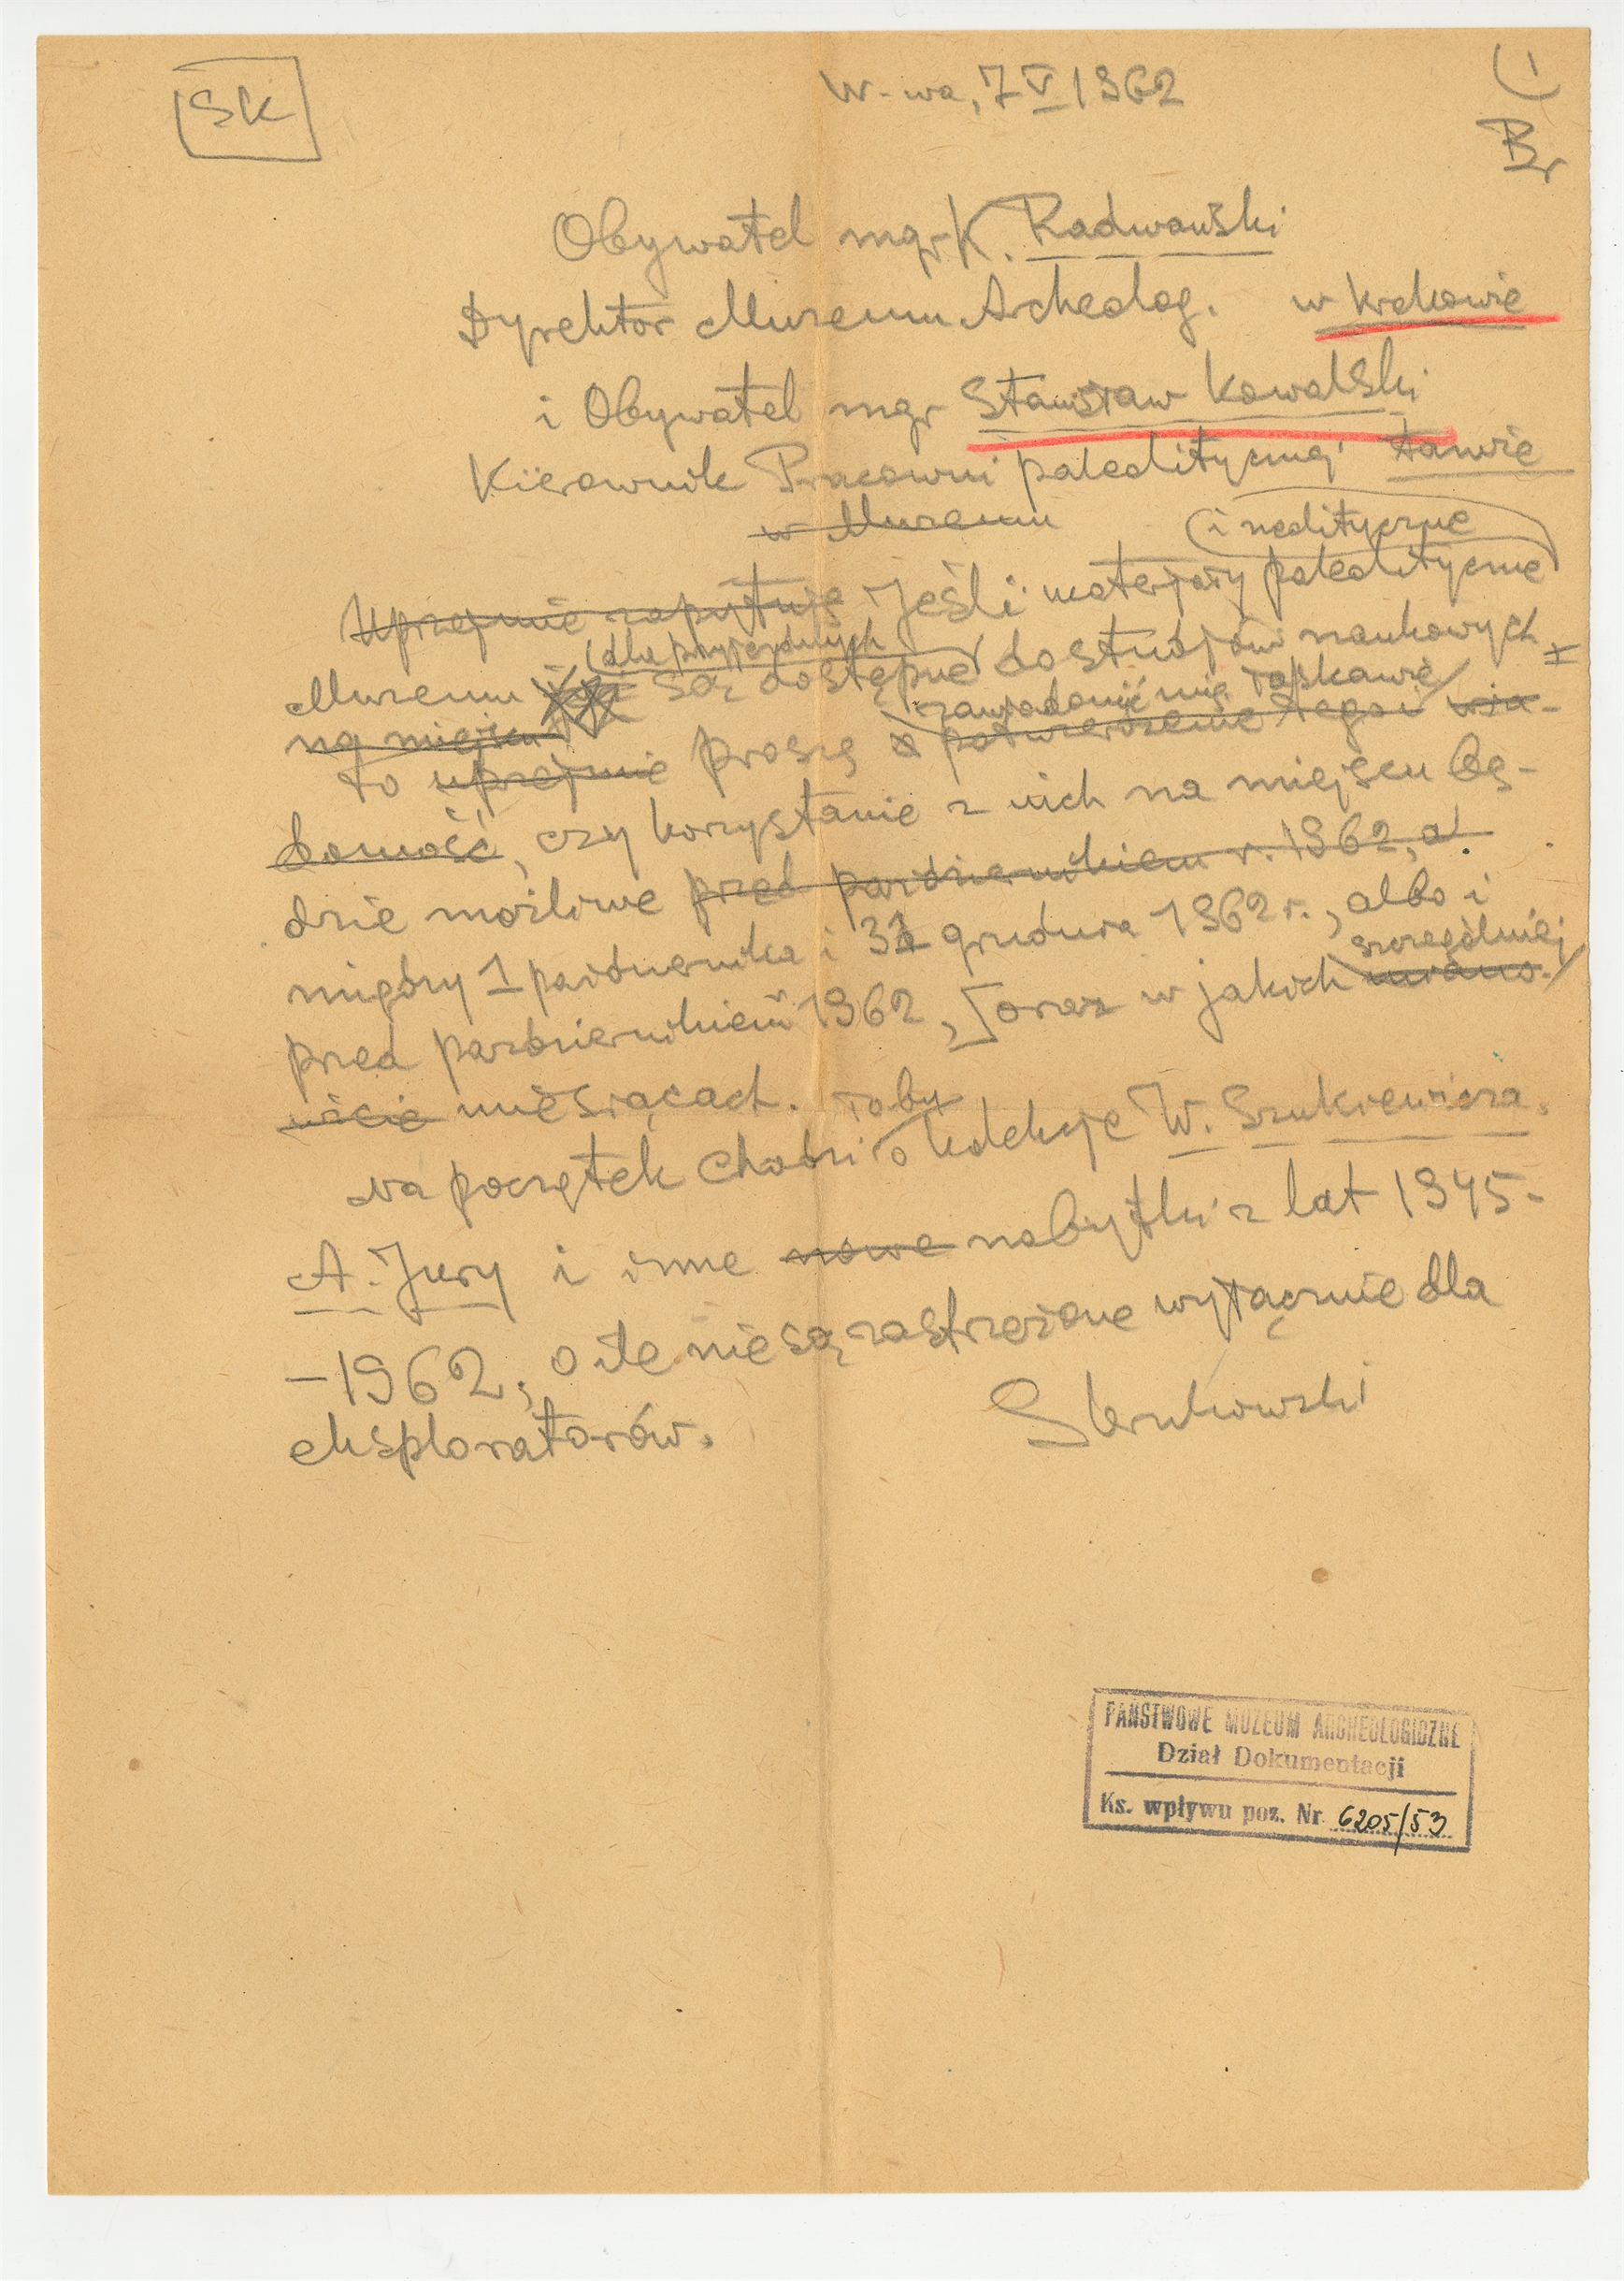 SK
W-wa, 7 V 1962
1
Br
Obywatel mgr K. Radwański
Dyrektor Muzeum Archeolog. w Krakowie
i Obywatel mgr Stanisław Kowalski
Kierownik Pracowni paleolitycznej tamże
w Muzeum
(i neolityczne)
Uprzejmie zapytuję Jeśli materjały paleolityczne
(dla przyjezdnych)
Muzeum są dostępne do studjów naukowych
zawiadomić mię łaskawie
na miejscu
to uprzejmie proszę o potwierdzenie tego i wia-
domość, czy korzystanie z nich na miejscu bę-
dzie możliwe przed październikiem r. 1962, a
między 1 października i 31 grudnia 1962 r., albo i
szczególniej
przed październikiem 1962, oraz w jakich miano-
wicie miesiącach.
Na początek chodzi łoby o kolekcje W. Szukiewicza,
A. Jury i inne nowe nabytki z lat 1945-
-1962, o ile nie są zastrzeżone wyłącznie dla
eksploratorów.
SKrukowski
PAŃSTWOWE MUZEUM ARCHEOLOGICZNE
Dział Dokumentacji
Ks. wpływu poz. Nr 6205/53